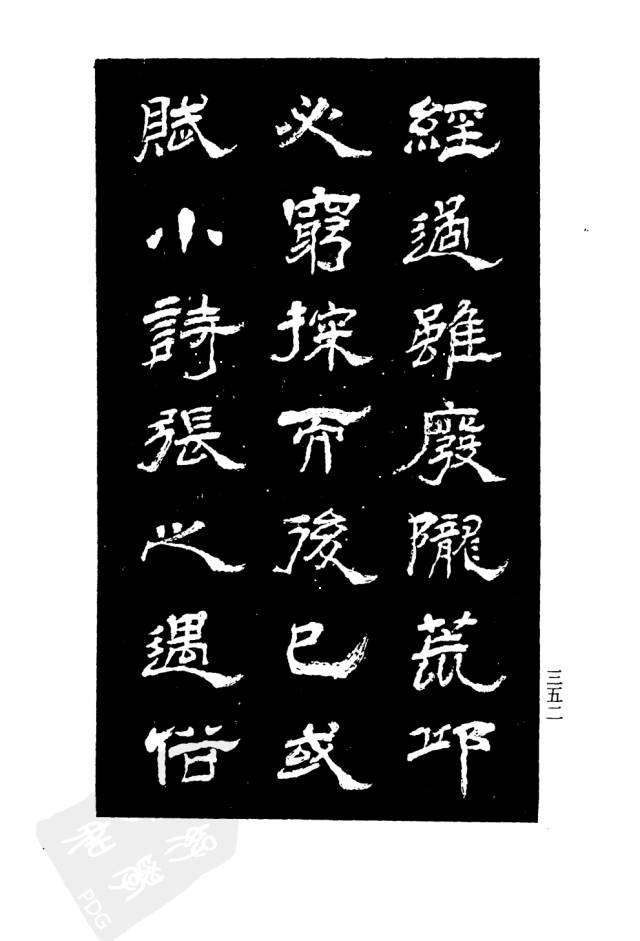 經過雖廢隴荒邱
必窮探而後已或
賦小詩張之遇俗
三五二
PDG